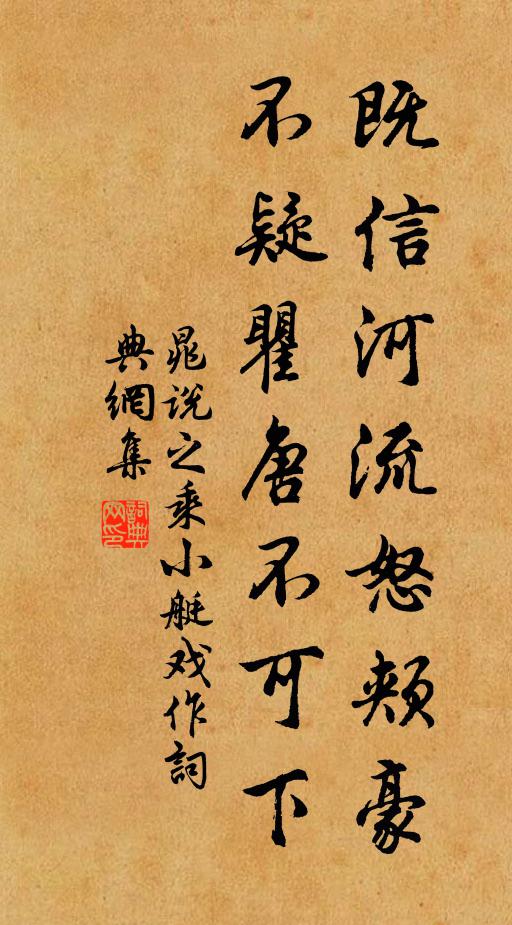 既信河流怒颊豪
不疑瞿唐不可下
晁说之乘小艇戏作詞
典網集
詞典网印